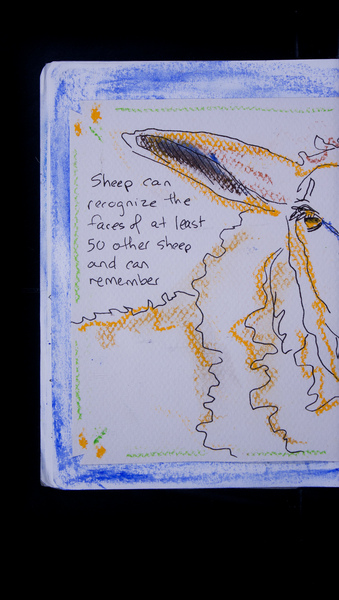 Sheep can
recognize the
faces of at least
50 other sheep
and can
remember